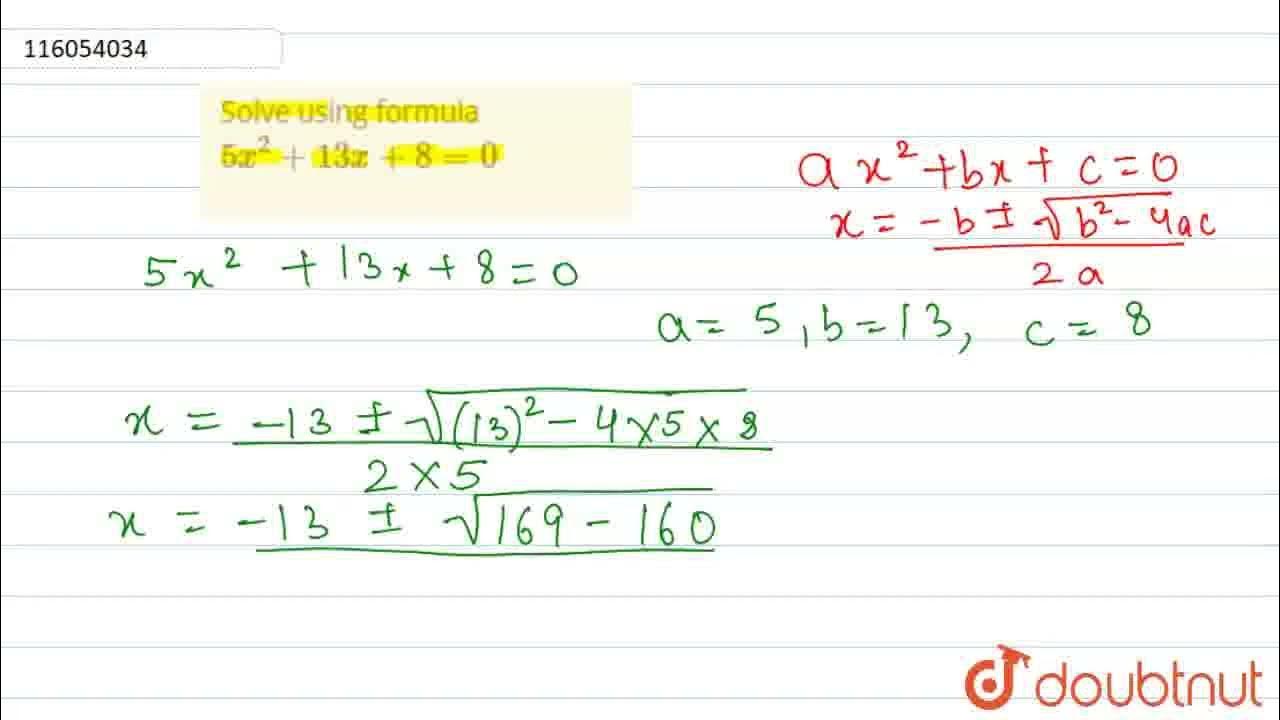 116054034
Solve using formula
5x² + 13x + 8 = 0
a x² + bx + c = 0
x = -b ± √b² - 4ac
2a
5x² + 13x + 8 = 0
a = 5, b = 13, c = 8
x = -13 ± √(13)² - 4×5×8
2×5
x = -13 ± √169 - 160
doubtnut